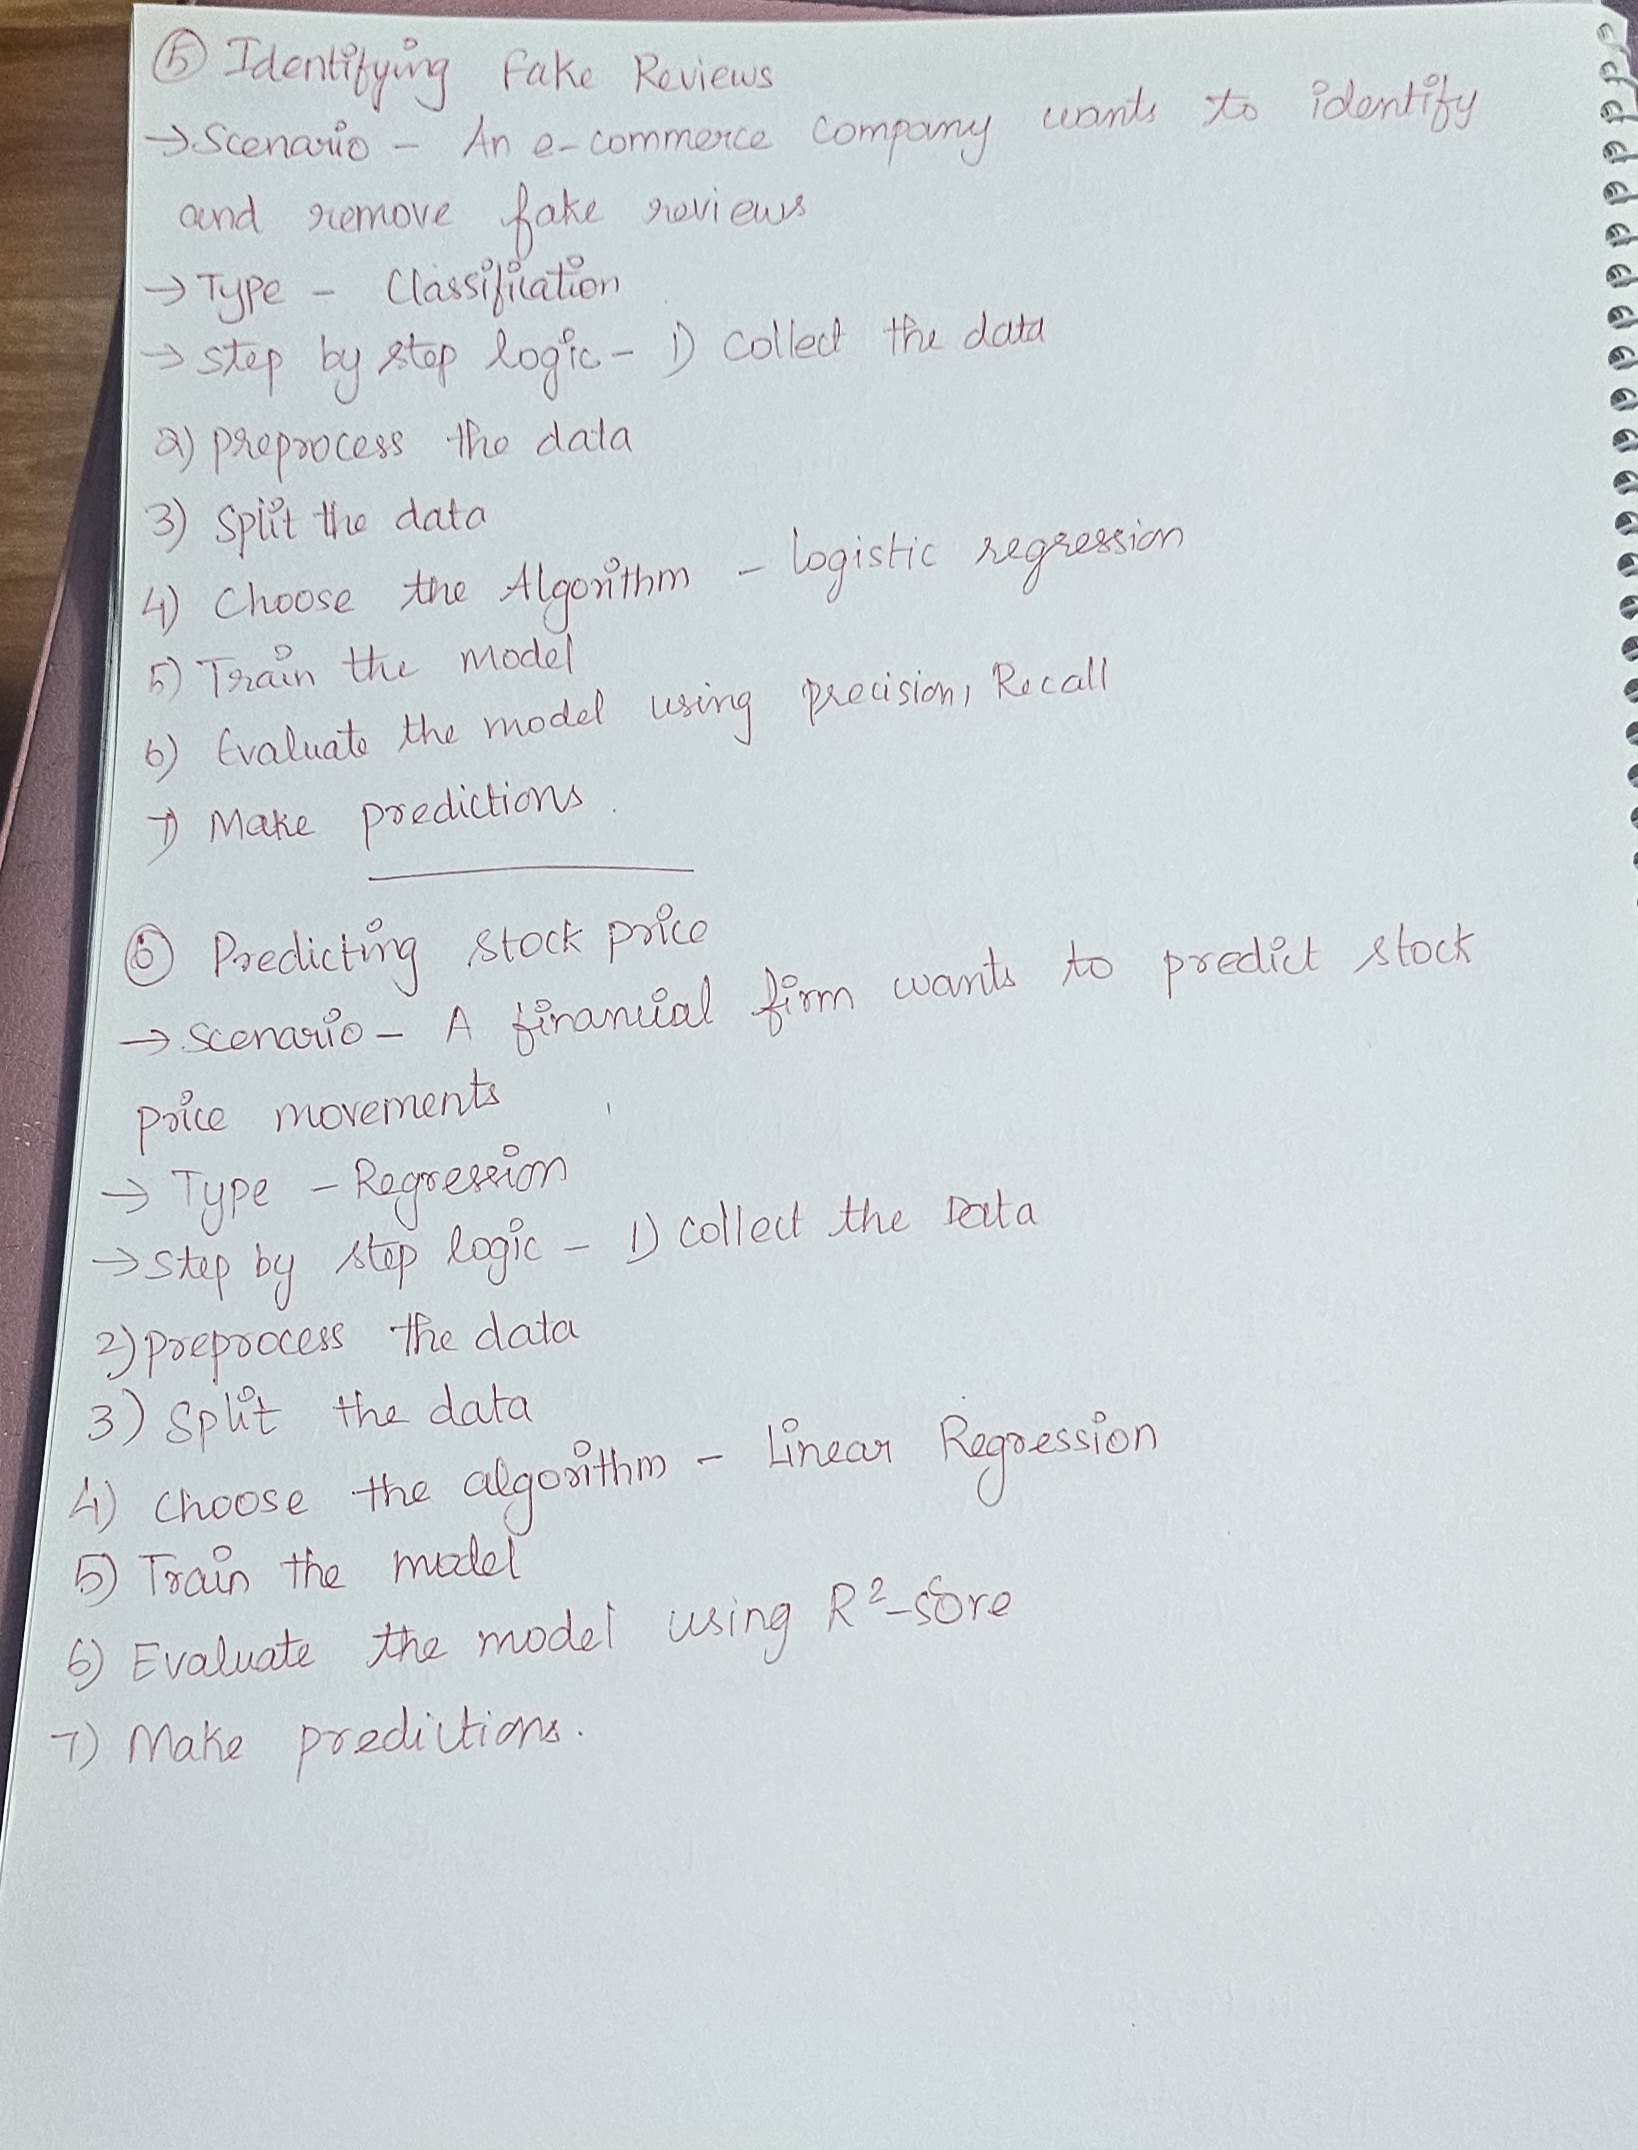 ⑤ Identifying Fake Reviews
→ Scenario - An e-commerce company wants to identify
and remove fake reviews
→ Type - Classification
→ step by step logic - 1) Collect the data
2) preprocess the data
3) Split the data
4) Choose the Algorithm - logistic regression
5) Train the model
6) Evaluate the model using precision, Recall
7) Make predictions.
⑥ Predicting stock price
→ Scenario - A financial firm wants to predict stock
price movements
→ Type - Regression
→ step by step logic - 1) collect the Data
2) preprocess the data
3) Split the data
4) choose the algorithm - Linear Regression
5) Train the model
6) Evaluate the model using R²-sore
7) Make predictions.